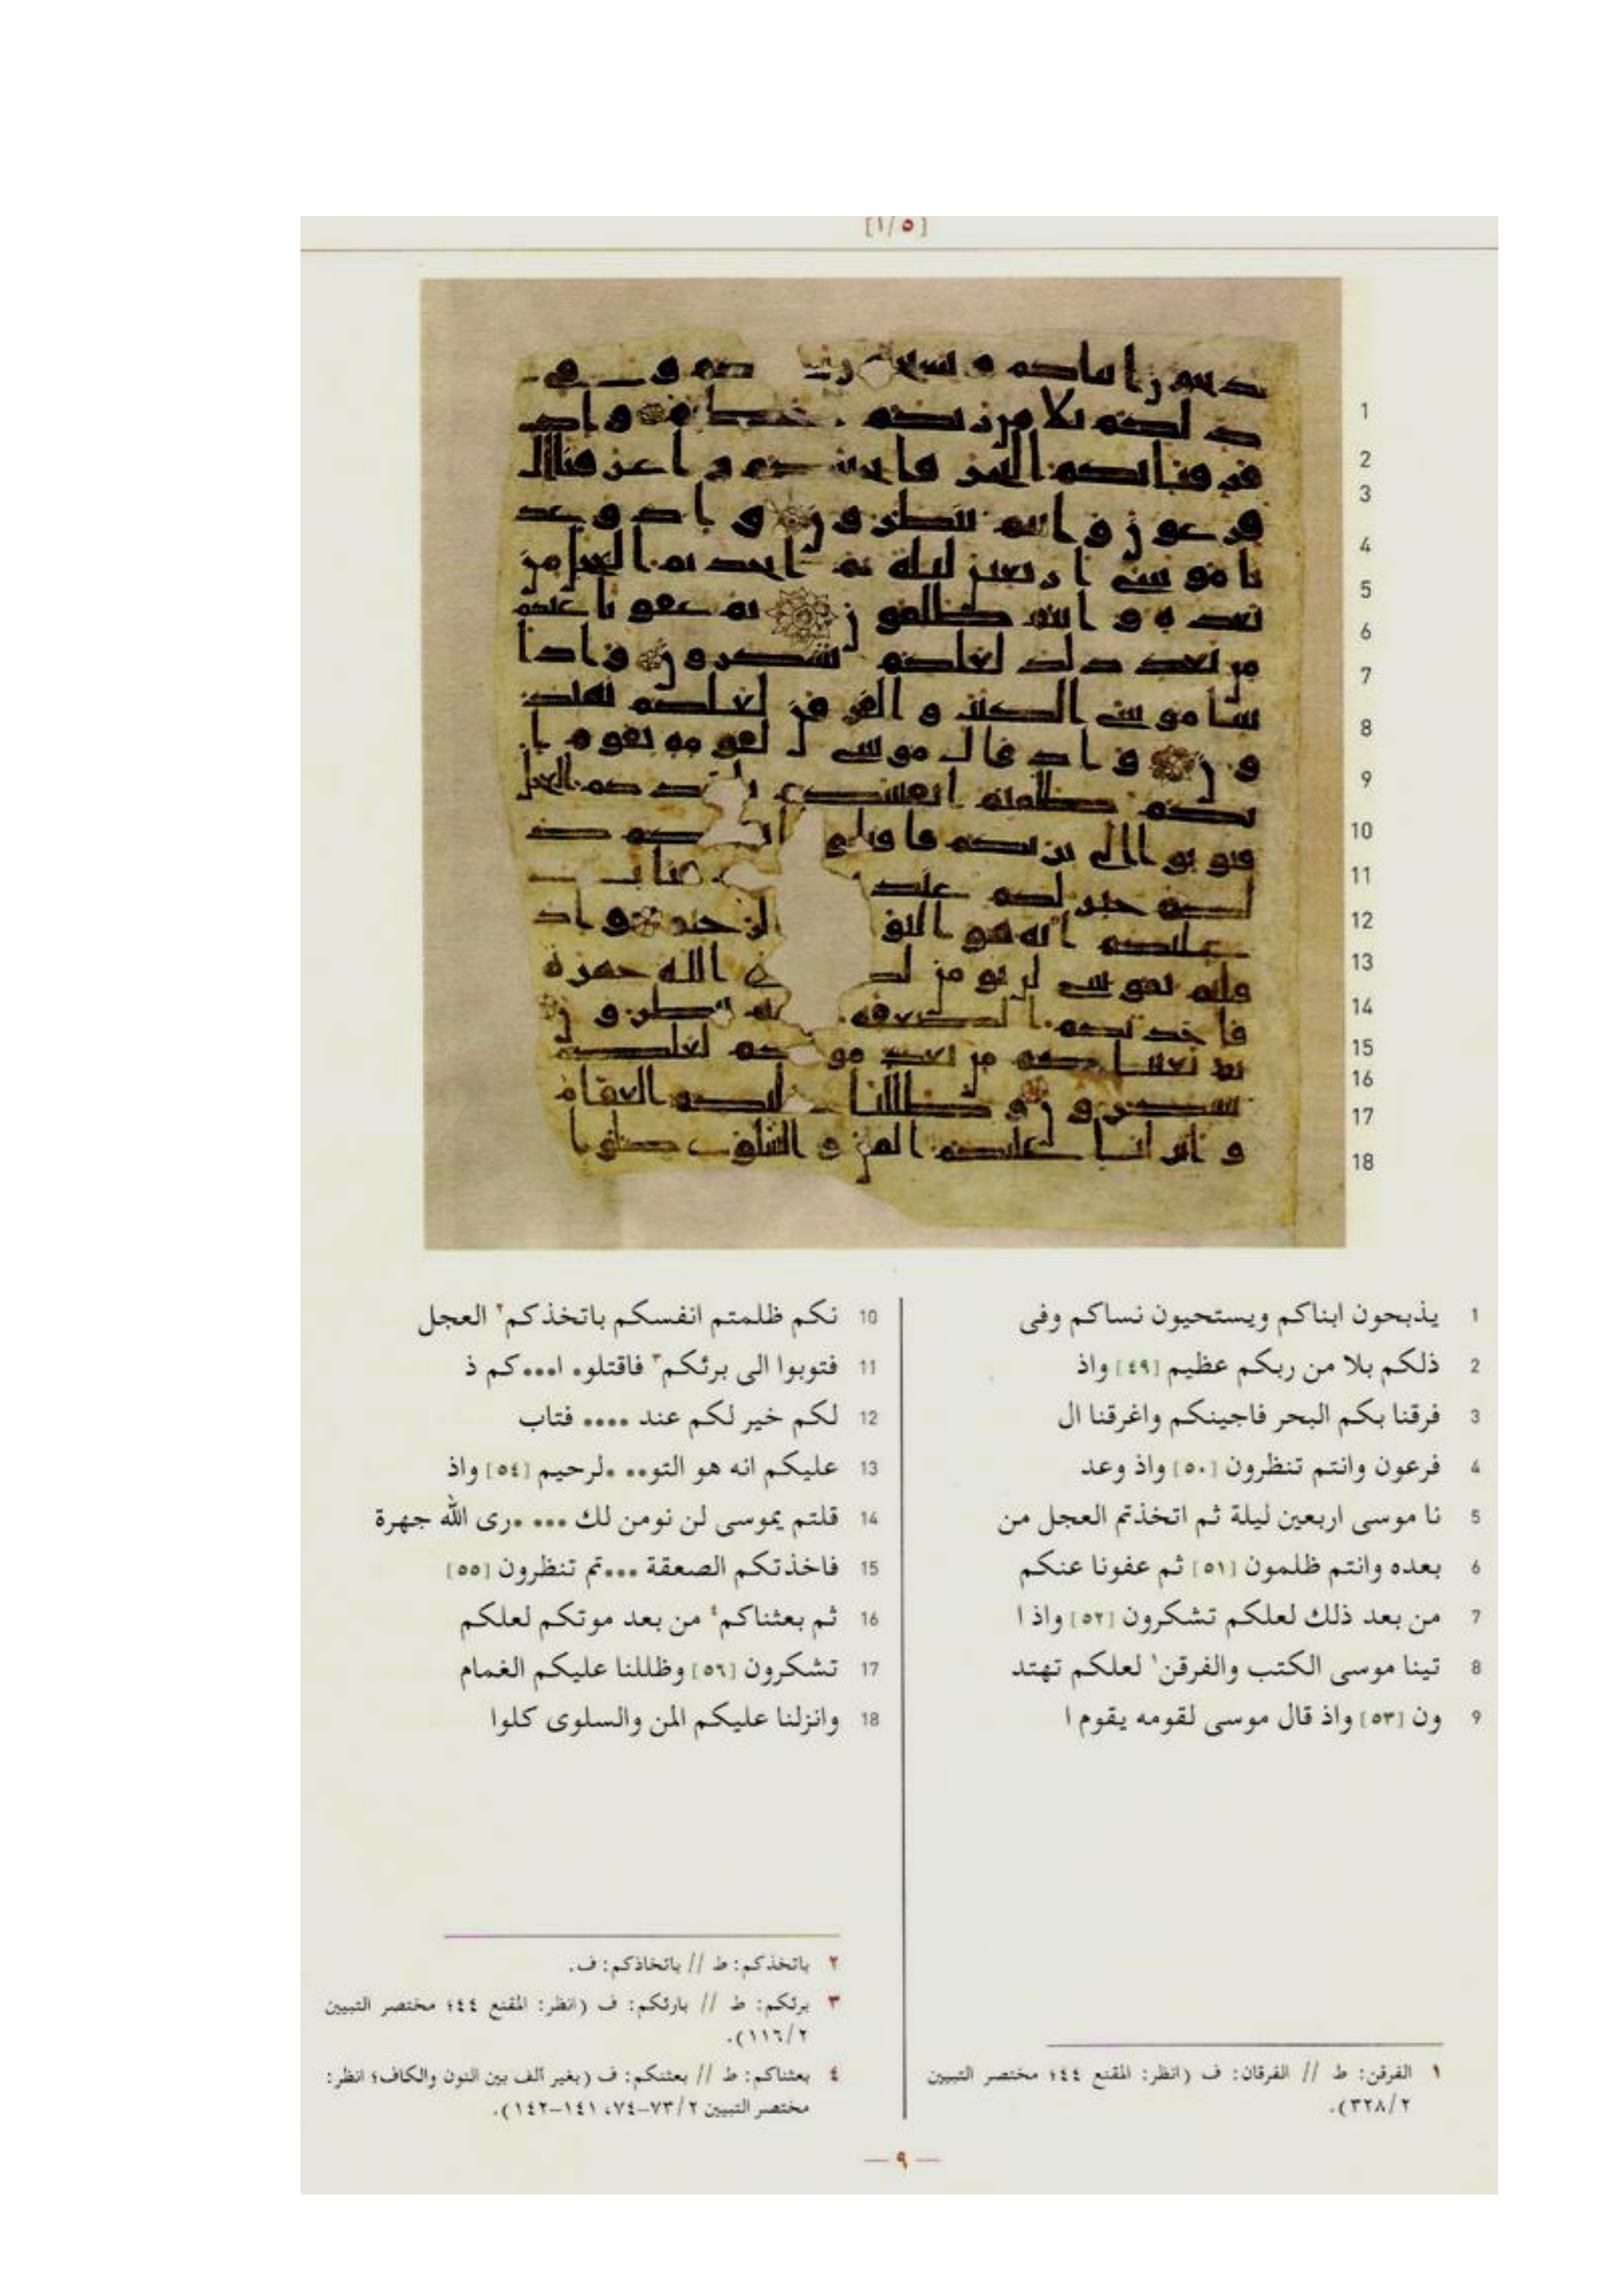 [١/٥]
1
2
3
4
5
6
7
8
9
10
11
12
13
14
15
16
17
18
1 يذبحون ابناكم ويستحيون نساكم وفى
2 ذلكم بلا من ربكم عظيم [٤٩] واذ
3 فرقنا بكم البحر فاجينكم واغرقنا ال
4 فرعون وانتم تنظرون [٥٠] واذ وعد
5 نا موسى اربعين ليلة ثم اتخذتم العجل من
6 بعده وانتم ظلمون [٥١] ثم عفونا عنكم
7 من بعد ذلك لعلكم تشكرون [٥٢] واذ ا
8 تينا موسى الكتب والفرقن١ لعلكم تهتد
9 ون [٥٣] واذ قال موسى لقومه يقوم ا
١ الفرقن: ط // الفرقان: ف (انظر: المقنع ٤٤؛ مختصر التبيين
٣٢٨/٢).
10 نكم ظلمتم انفسكم باتخذكم٢ العجل
11 فتوبوا الى برئكم٣ فاقتلو. ا...كم ذ
12 لكم خير لكم عند .... فتاب
13 عليكم انه هو التو.. .لرحيم [٥٤] واذ
14 قلتم يموسى لن نومن لك ... .رى الله جهرة
15 فاخذتكم الصعقة ...تم تنظرون [٥٥]
16 ثم بعثناكم٤ من بعد موتكم لعلكم
17 تشكرون [٥٦] وظللنا عليكم الغمام
18 وانزلنا عليكم المن والسلوى كلوا
٢ باتخذكم: ط // باتخاذكم: ف.
٣ برئكم: ط // بارئكم: ف (انظر: المقنع ٤٤؛ مختصر التبيين
١١٦/٢).
٤ بعثناكم: ط // بعثنكم: ف (بغير ألف بين النون والكاف؛ انظر:
مختصر التبيين ٧٣/٢-٧٤، ١٤١-١٤٢).
— ٩ —